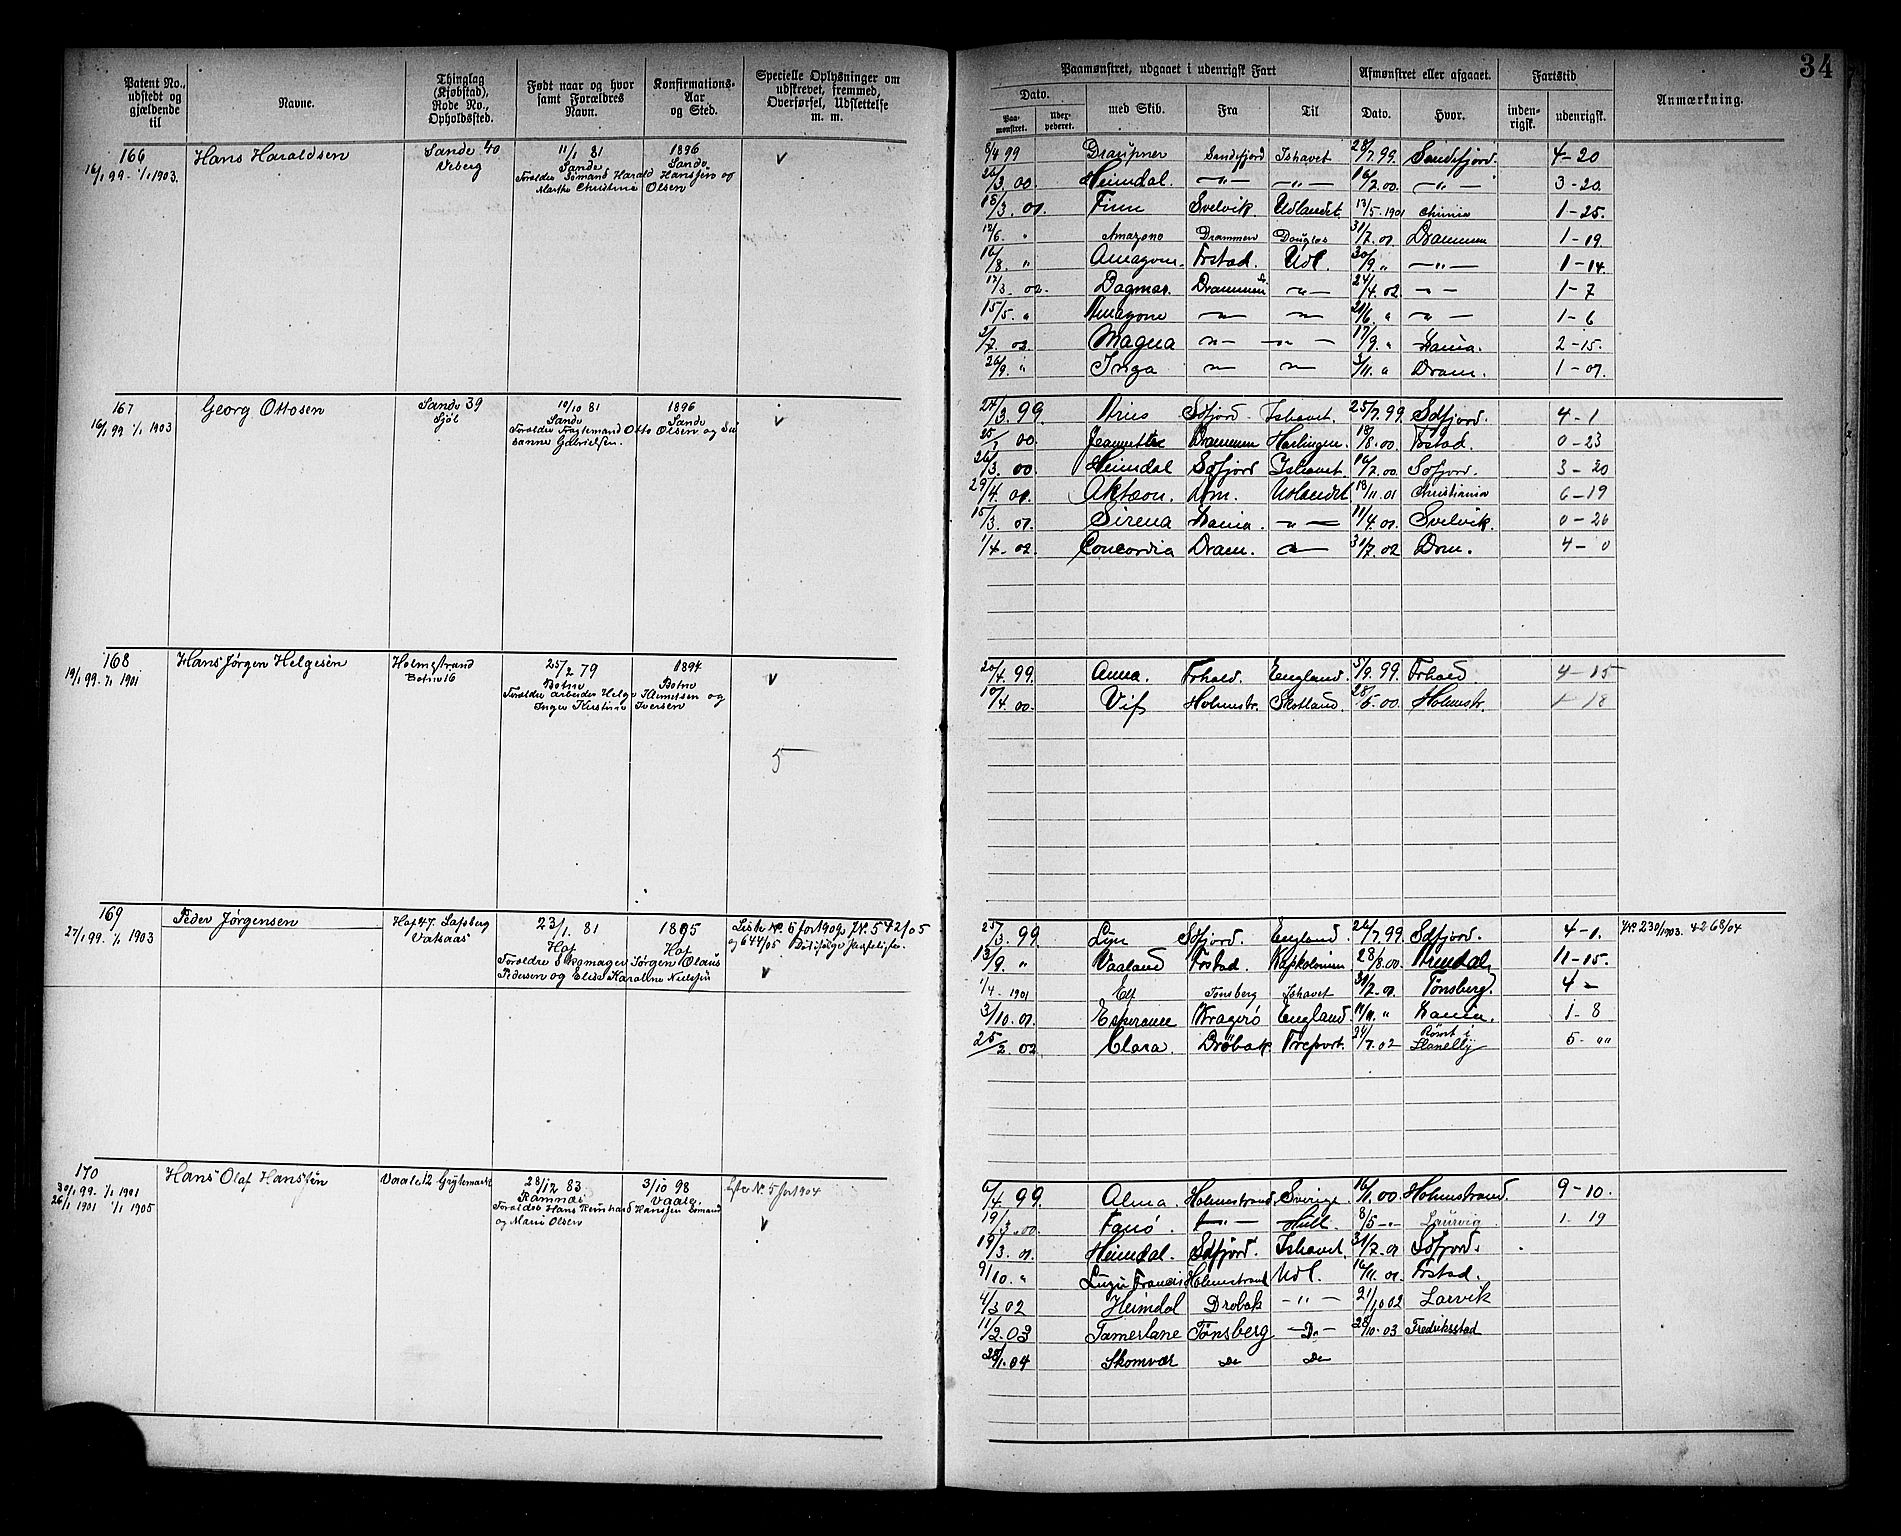 34
Patent No., udstedt og gjældende til
Navne.
Thinglag (Kjøbstad), Rode No., Opholdssted.
Født naar og hvor samt Forældres Navn.
Konfirmations-Aar og Sted.
Specielle Oplysninger om udskrevet, fremmed, Overførsel, Udslettelse m. m.
Paamønstret, udgaaet i udenrigsk Fart
Afmønstret eller afgaaet.
Fartstid
Anmærkning.
Dato.
med Skib.
Fra
Til
Dato.
Hvor.
inden-rigsk.
udenrigsk.
Paa-mønstret.
166
16/1 99. 1/1 1903.
Hans Haraldsen
Sande 40
Veberg
11/1 81
Sande
1896
Sande
Forældre Sømand Harald Hanssen og
Marthe Christine Olsen
8/4 99 Draupner Sandefjord Ishavet 28/7.99. Sandefjord. 4-20
26/3.00. Heimdal. —„— —„— 16/7.00. —„— 3-20.
18/3.01. Finn Svelvik Udlandet. 13/5.1901 1-25.
12/6. „ Amazone Drammen Douglas 31/7.01. Drammen 1-19
16/8. „ Amagone. Frstad. Udl. 30/9. „ —„— 1-14.
17/3.02. Dagmar. Drammen —„— 24/4.02. —„— 1-7
15/5. „ Amagone —„— —„— 21/6. „ —„— 1-6
2/7.02 Magna —„— —„— 17/9. „ Xania. 2-15.
26/9. „ Inga —„— —„— 3/11. „ Dram. 1-07.
167
16/1 99 1/1 1903
Georg Ottosen
Sande 39
Sjøl
10/10 81
Sande
1896
Sande
Forældre Fragtemand Otto Olsen og Su
sanne Gabrielsen.
27/3.99. Aries Sdfjord. Ishavet. 25/7.99. Sdfjord. 4-1
25/7.00. Jeannette Drammen Harlingen. 18/8.00. Frstad. 0-23
26/3.00. Heimdal Sdfjord Ishavet 16/7.00. Sdfjord. 3-20
29/4.01. Aktæon. Drm. Udlandet 18/11.01 Christiania 6-19
15/3.01. Sirena Xania. —„— 11/4.01. Svelvik. 0-26
1/4.02. Concordia Dram. —„— 31/7.02 Drm. 4-0
168
19/1 99. 1/1 1901
Hans Jørgen Helgesen
Holmestrand
Botne 16
25/2 79
Botne
1894
Botne
Forældre Arbeider Helge Klemetsen og
Inger Kirstine Iversen
5
20/4.99. Anna. Frhald. England. 5/9.99. Frhald 4-15
10/4.00. Vif Holmstr. Skotland. 28/5.00. Holmstr. 1-18
169
27/1 99. 1/1 1903
Peder Jørgensen
Hof 47. Safsberg
Vatsaas
23/1. 81
Hof
1895
Hof
Liste No. 5 for 1902, J.No. 542/05
og 644/05
Forældre Skomager Jørgen Olaus
Pedersen og Elise Karoline Nielssen
25/3.99. Lyn Sdfjord. England. 26/7.99. Sdfjord. 4-1. JNo 230/1903. 4268/04
13/9. „ Vaaland Frstad. Kapkolonien 28/8.00. Arendal. 11-15.
1/4.1901 Elf Tønsberg Ishavet 31/7.01. Tønsberg. 4 -
3/10.01. Esperance Kragerø England. 11/11. „ Xania. 1-8
25/2.02. Clara. Drøbak Treport. 24/7.02 Rømt i Llanelly 5-„
170
30/1 99. 1/1 1901
26/1 1901 1/1 1905
Hans Olaf Hanssen
Vaale 12 Grytemarki
28/12 83
Ramnæs
3/10 98
Vaale.
Liste No. 5 for 1904
Forældre Hans Reinhard Hanssen Sømand
og Marie Olsen
6/4.99. Alma. Holmestrand. Sverige. 16/1.00. Holmestrand. 9-10.
19/3.00. Fanø. —„— Hull. 8/5 -„- Laurvig 1. 19
19/3.01. Heimdal. Sdfjord. Ishavet. 31/7.01 Sdfjord.
9/10. „ Francis Holmestrand Udl. 16/11.01. Frstad.
4/3 02 Heimdal Drøbak —„— 21/10 02 Larvik
11/2.03 Tamerlane Tønsberg —D— 28/10.03 Fredriksstad
28/1.04 Skomvær Do Do